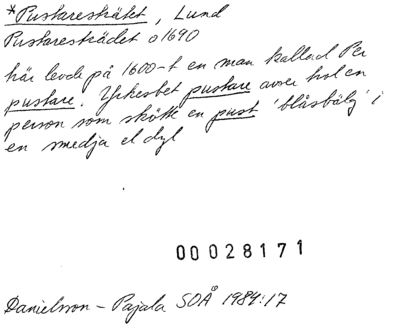 *Pustaresträtet, Lund
Pustaresträdet o1690
här levde på 1600-t en man kallad Per
pustare. Yrkesbet pustare avser hos en
person som skötte en pust 'blåsbälg' i
en smedja el dyl
00028171
Danielsson - Pajala SOÅ 1984:17